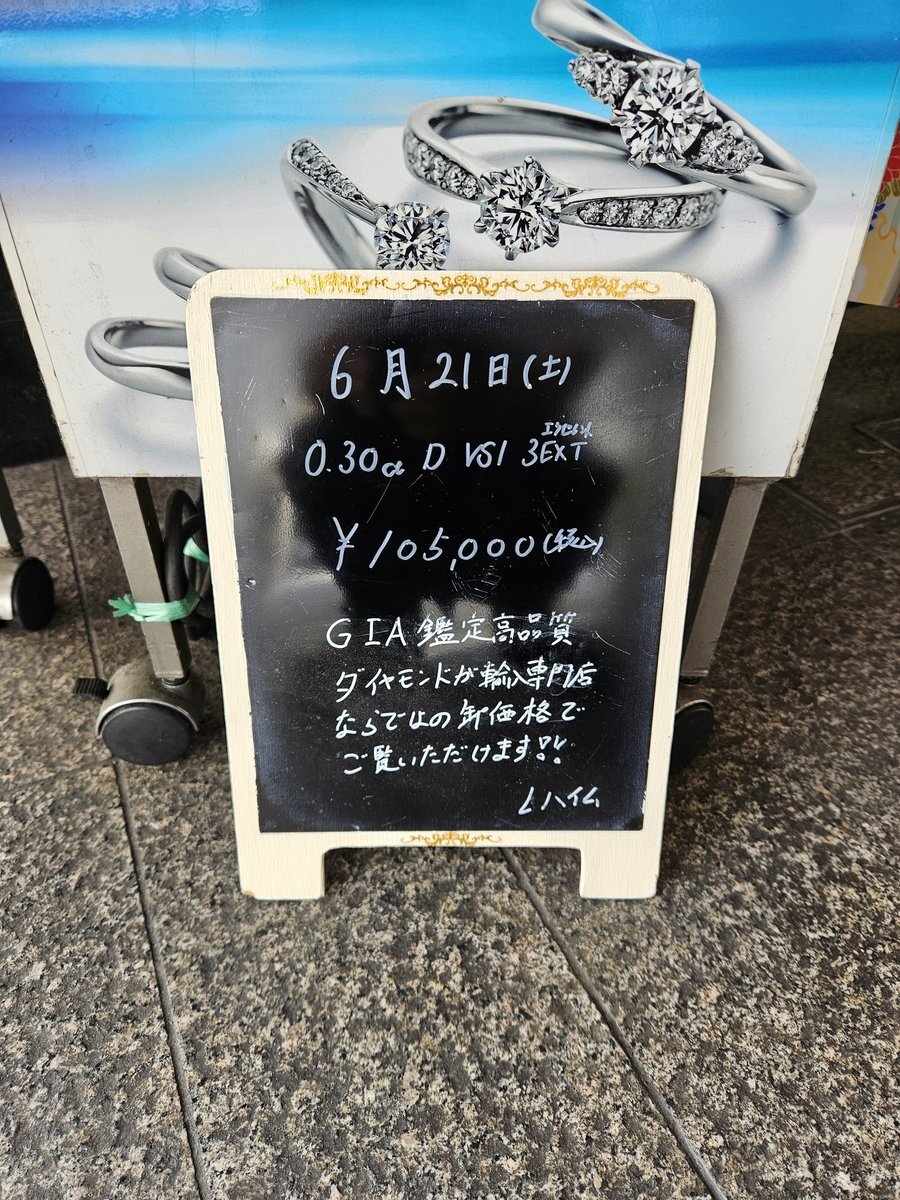 6月21日(土)
エクセレント
0.30ct D VS1 3EXT
¥105,000(税込)
GIA鑑定高品質
ダイヤモンドが輸入専門店
ならではの卸価格で
ご覧いただけます!!
レハイム